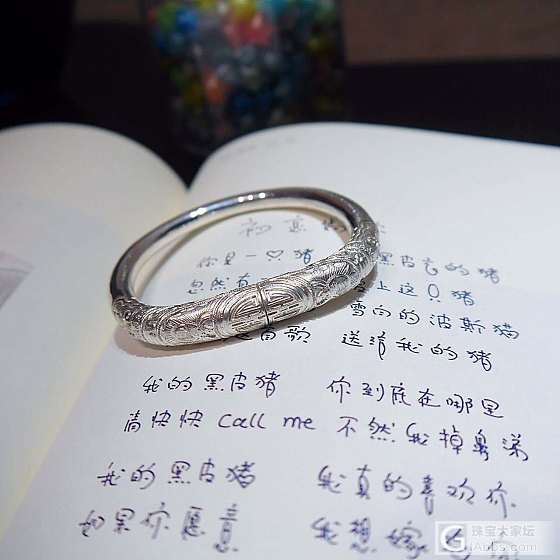 初意
你是一〇猪 黑皮肤的猪
忽然有 上这〇猪
雪白的波斯猫
首歌 送请我的猪
我的黑皮猪 你到底在哪里
请快快 call me 不然我掉鼻涕
我的黑皮猪 我真的喜欢你
如果你愿意 我想嫁
珠宝大家坛